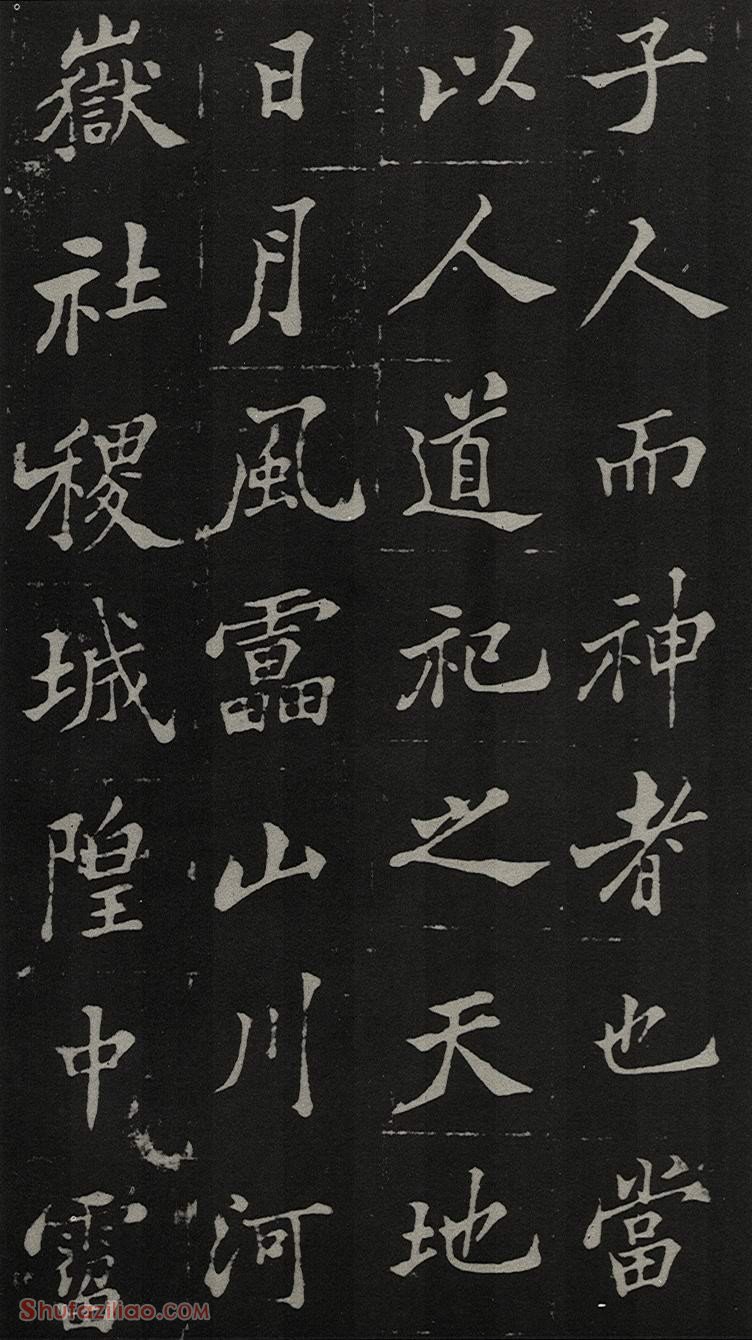 子人而神者也當
以人道祀之天地
日月風靁山川河
嶽社稷城隍中霤
Shufaziliao.com